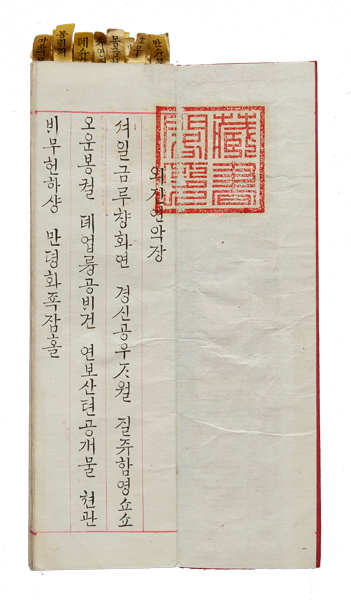 외진연악장
셔일금루챵화연 경신공우ᄌᆞ월 질쥬함영쇼쇼
오운봉궐 뎨업륭공비건 연보산뎐공개물 쳔관
비무헌하샹 만뎡화죡잠홀
藏書
閣印